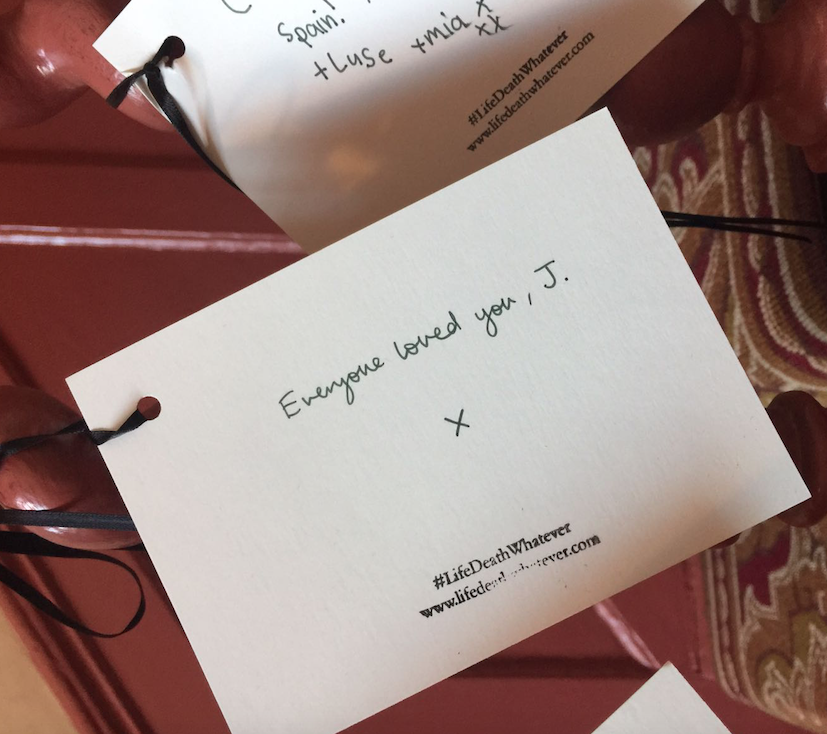 Spain!
+Luse +mia x
xx
#LifeDeathWhatever
www.lifedeathwhatever.com
Everyone loved you, J.
x
#LifeDeathWhatever
www.lifedeathwhatever.com